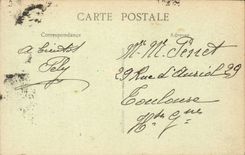 CARTE POSTALE
Correspondance
Adresse
A bientôt
Mr M. Pinet
29 Rue d'Auriol 29
Toulouse
Hte Gne